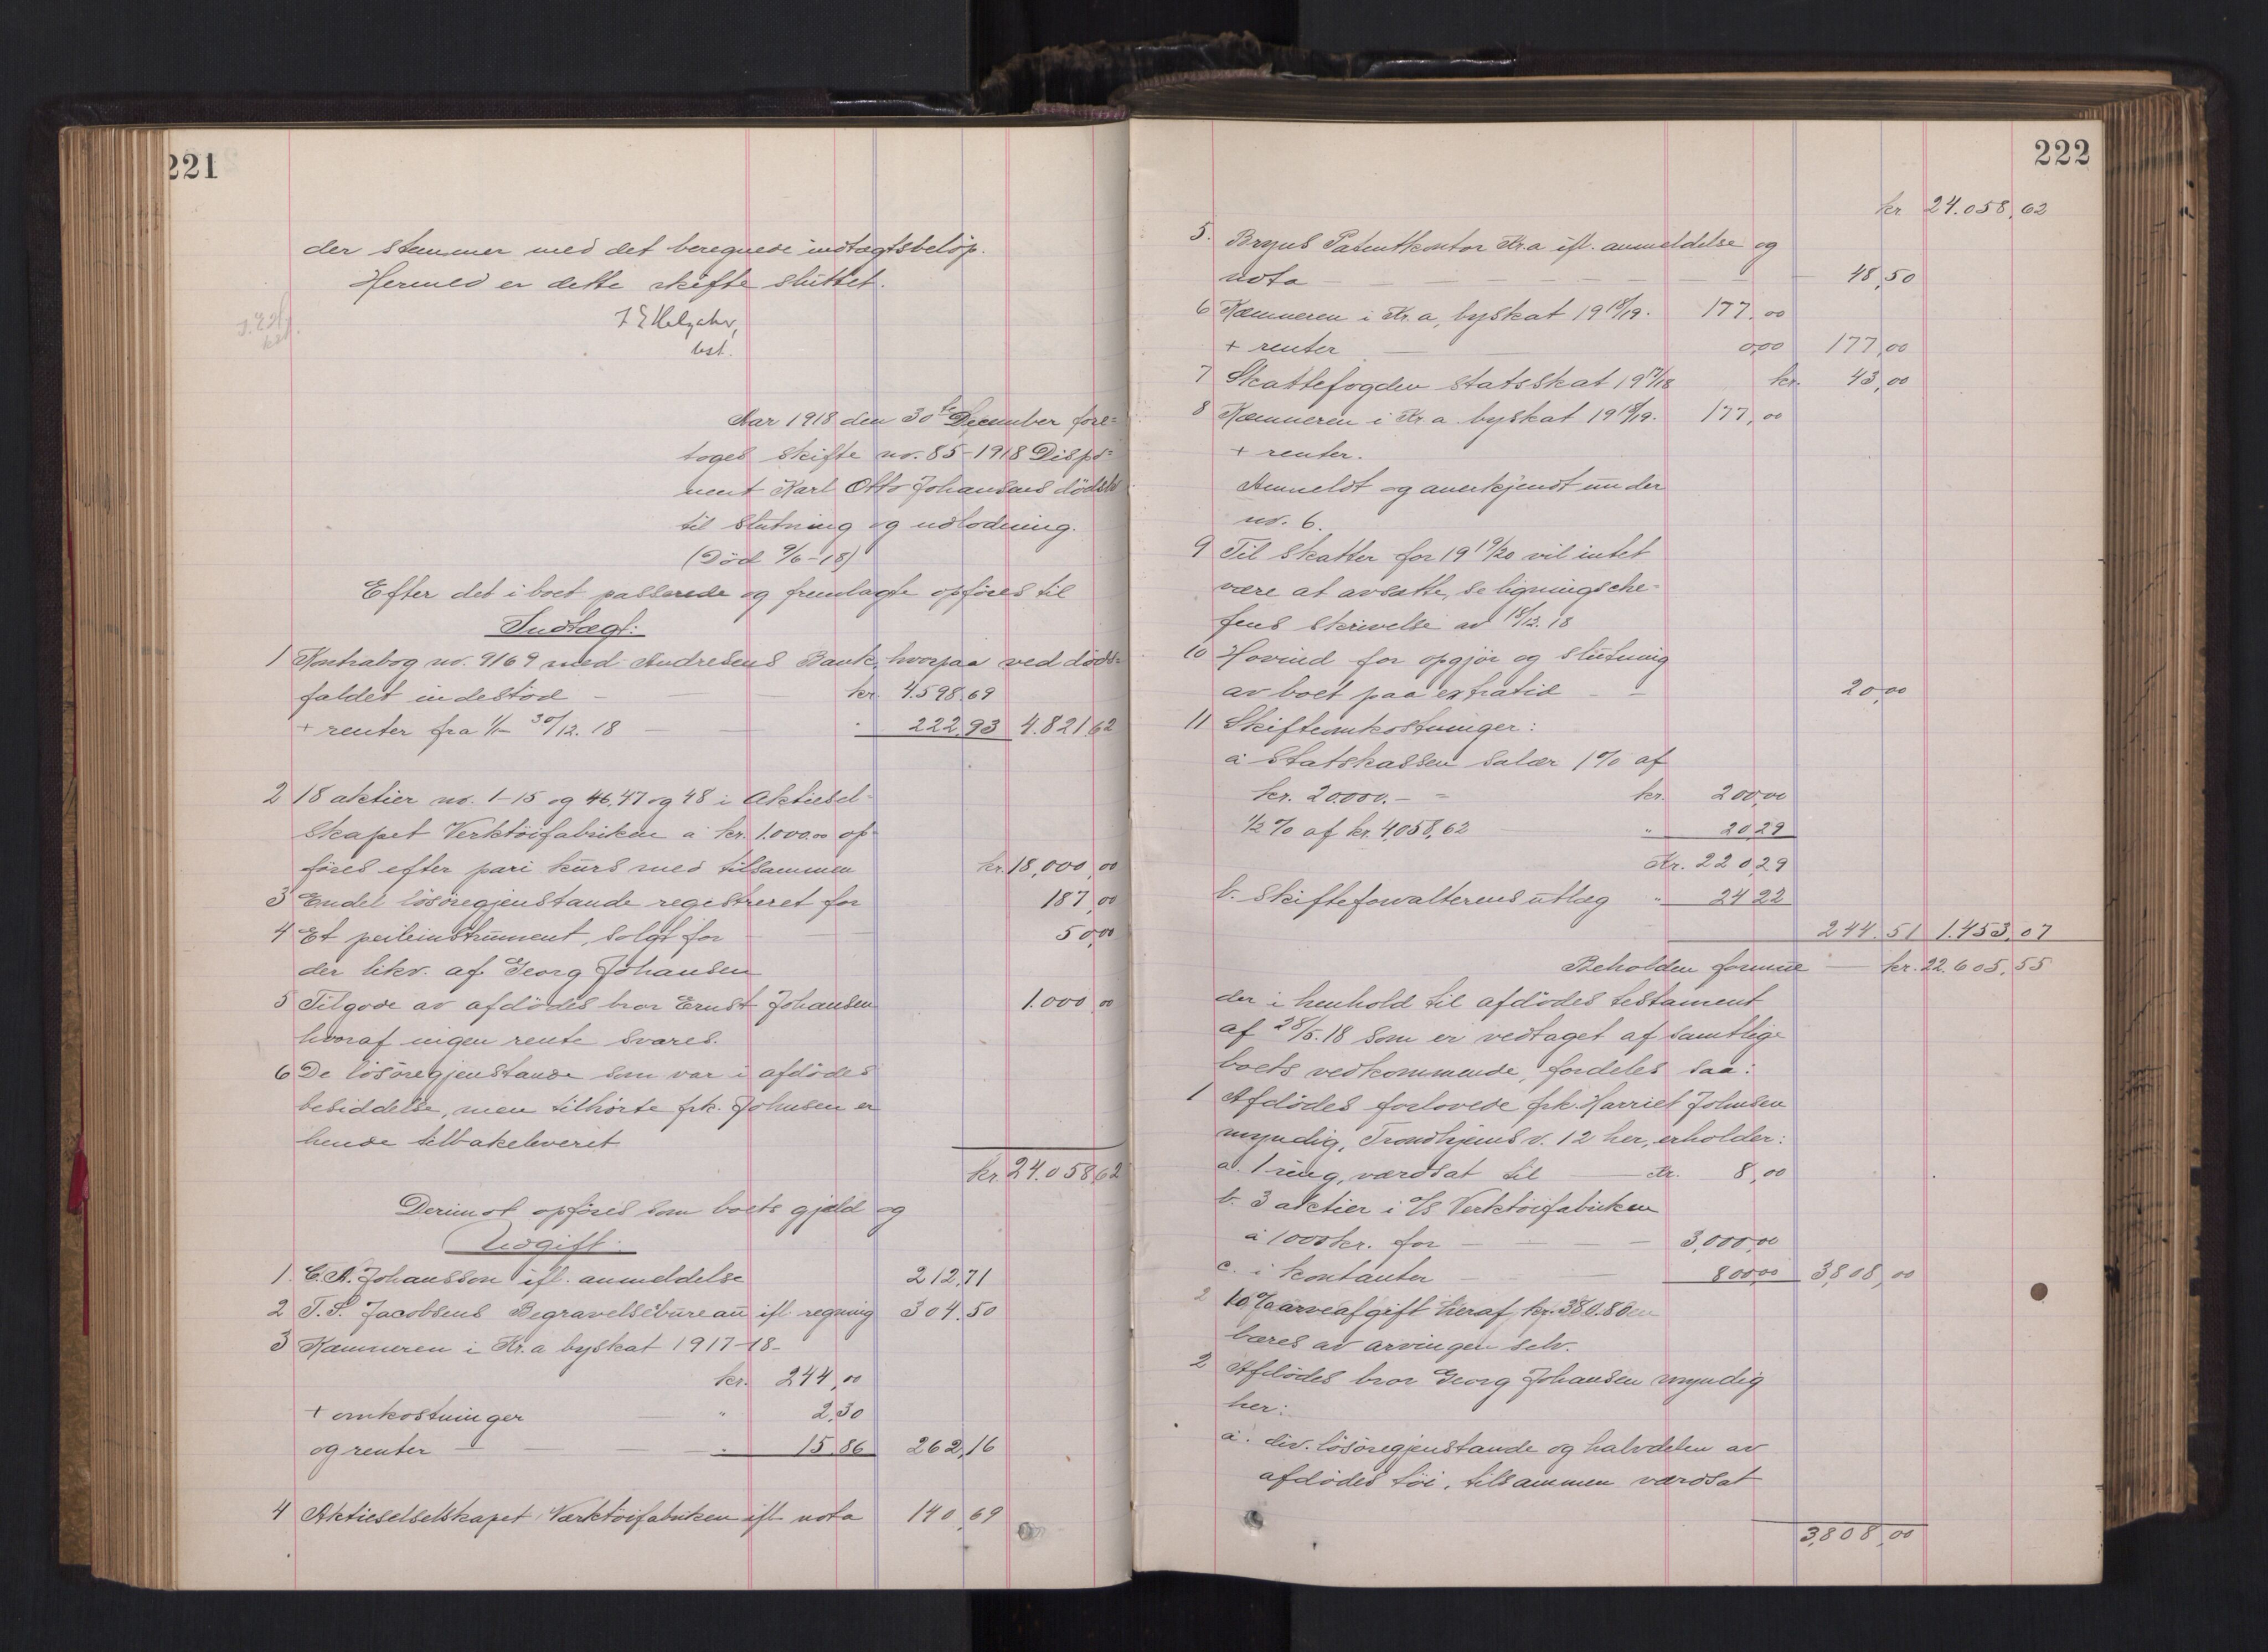 221
der stemmer med det beregnede indtægtsbeløp.
Hermed er dette skifte sluttet.
bst.
Aar 1918 den 30te December fore-
toges skifte no. 85-1918 Dispo-
nent Karl Otto Johansens dødsbo
til slutning og udlodning.
(Død 9/6-18)
Efter det i boet passerede og fremlagte opføres til
Indtægt:
1 Kontrabog no. 9169 med Andresens Bank, hvorpaa ved døds-
faldet indestod - kr. 4.598,69
+ renter fra 1/1- 30/12. 18 — — " 222,93 4.821,62
2 18 aktier no. 1-15 og 46, 47 og 48 i Aktiesel-
skapet Verktøifabriken a kr. 1.000.00 op-
føres efter pari kurs med tilsammen kr. 18,000,00
3 Endel løsøregjenstande registreret for 187,00
4 Et peileinstrument, solgt for 50,00
der likv. af Georg Johansen
5 Tilgode av afdødes bror Ernst Johansen 1.000,00
hvoraf ingen rente svares.
6 De løsøregjenstande som var i afdødes
besiddelse, men tilhørte frk. Johnsen er
hende tilbakeleveret
kr. 24.058,62
Derimot opføres som boets gjæld og
Udgift:
1. C. A. Johansson ifl. anmeldelse 212,71
2 T. S. Jacobsens Begravelsebureau ifl. regning 304.50
3 Kæmneren i Kr.a byskat 1917-18-
kr. 244,00
+ omkostninger " 2,30
og renter — — — " 15.86 262,16
4 Aktieselselskapet Værktøifabriken ifl. nota 140,69
222
kr. 24.058,62
5. Bryns Patentkontor Kr.a ifl. anmeldelse og
nota — — — — — — 48,50
6 Kæmneren i Kr.a, byskat 1918/19. 177.00
+ renter — — 0,00 177,00
7 Skattefogden statsskat 1917/18 kr. 43,00
8 Kæmneren i Kr.a byskat 1918/19. 177,00
+ renter.
Anmeldt og anerkjendt under
no. 6.
9 Til skatter for 1919/20 vil intet
være at avsætte, se ligningsche-
fens skrivelse av 18/12. 18
10 Hovind for opgjør og slutning
av boet paa extratid - - 20,00
11 Skifteomkostninger:
a Statskassen salær 1% af
kr. 20.000.- = kr. 200,00
1/2 % af kr. 4,058,62 " 20,29
Kr. 220,29
b. Skifteforvalterens utlæg " 24 22
244.51 1.453,07
Beholden formue — kr. 22.605,55
der i henhold til afdødes testament
af 28/5. 18 som er vedtaget af samtlige
boets vedkommende, fordeles saa:
1 Afdødes forlovede frk. Harriet Johnsen
myndig, Trondhjems v. 12 her, erholder:
a. 1 ring, værdsat til — Kr. 8,00
b. 3 aktier i A/S Verktøifabriken
à 1000 kr. for — — — 3,000,00
c. i kontanter — — 800,00 3,808,00
2 10% arveafgift heraf kr. 380.80
bæres av arvingen selv.
2 Afdødes bror Georg Johansen myndig
her:
a. div. løsøregjenstande og halvdelen av
afdødes tøi, tilsammen værdsat
3,808,00